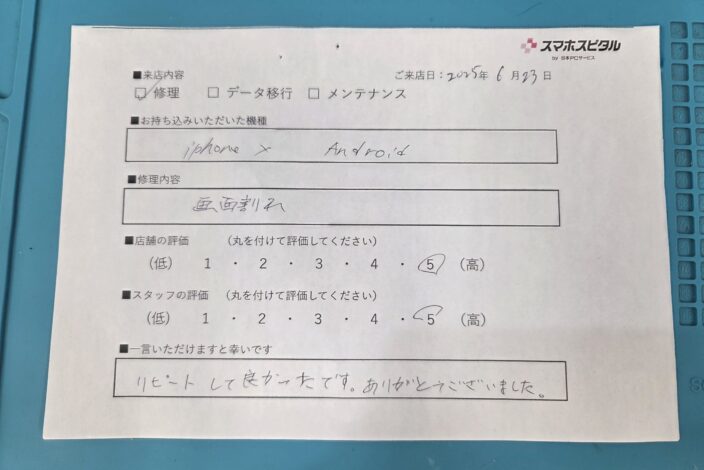 スマホスピタル
by 日本PCサービス
■来店内容
ご来店日：2025年 6月23日
☑ 修理 □ データ移行 □ メンテナンス
■お持ち込みいただいた機種
iphone X Android
■修理内容
画面割れ
■店舗の評価 （丸を付けて評価してください）
（低） 1 ・ 2 ・ 3 ・ 4 ・ 5 （高）
■スタッフの評価 （丸を付けて評価してください）
（低） 1 ・ 2 ・ 3 ・ 4 ・ 5 （高）
■一言いただけますと幸いです
リピート して良かったです。ありがとうございました。